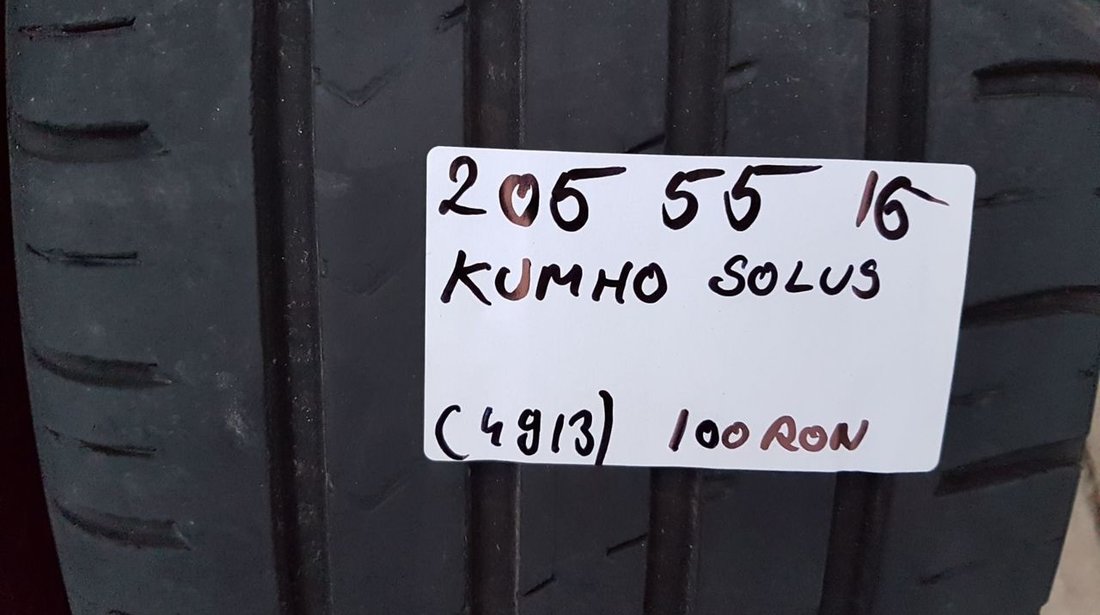 205 55 16
KUMHO SOLUS
(4913) 100 RON